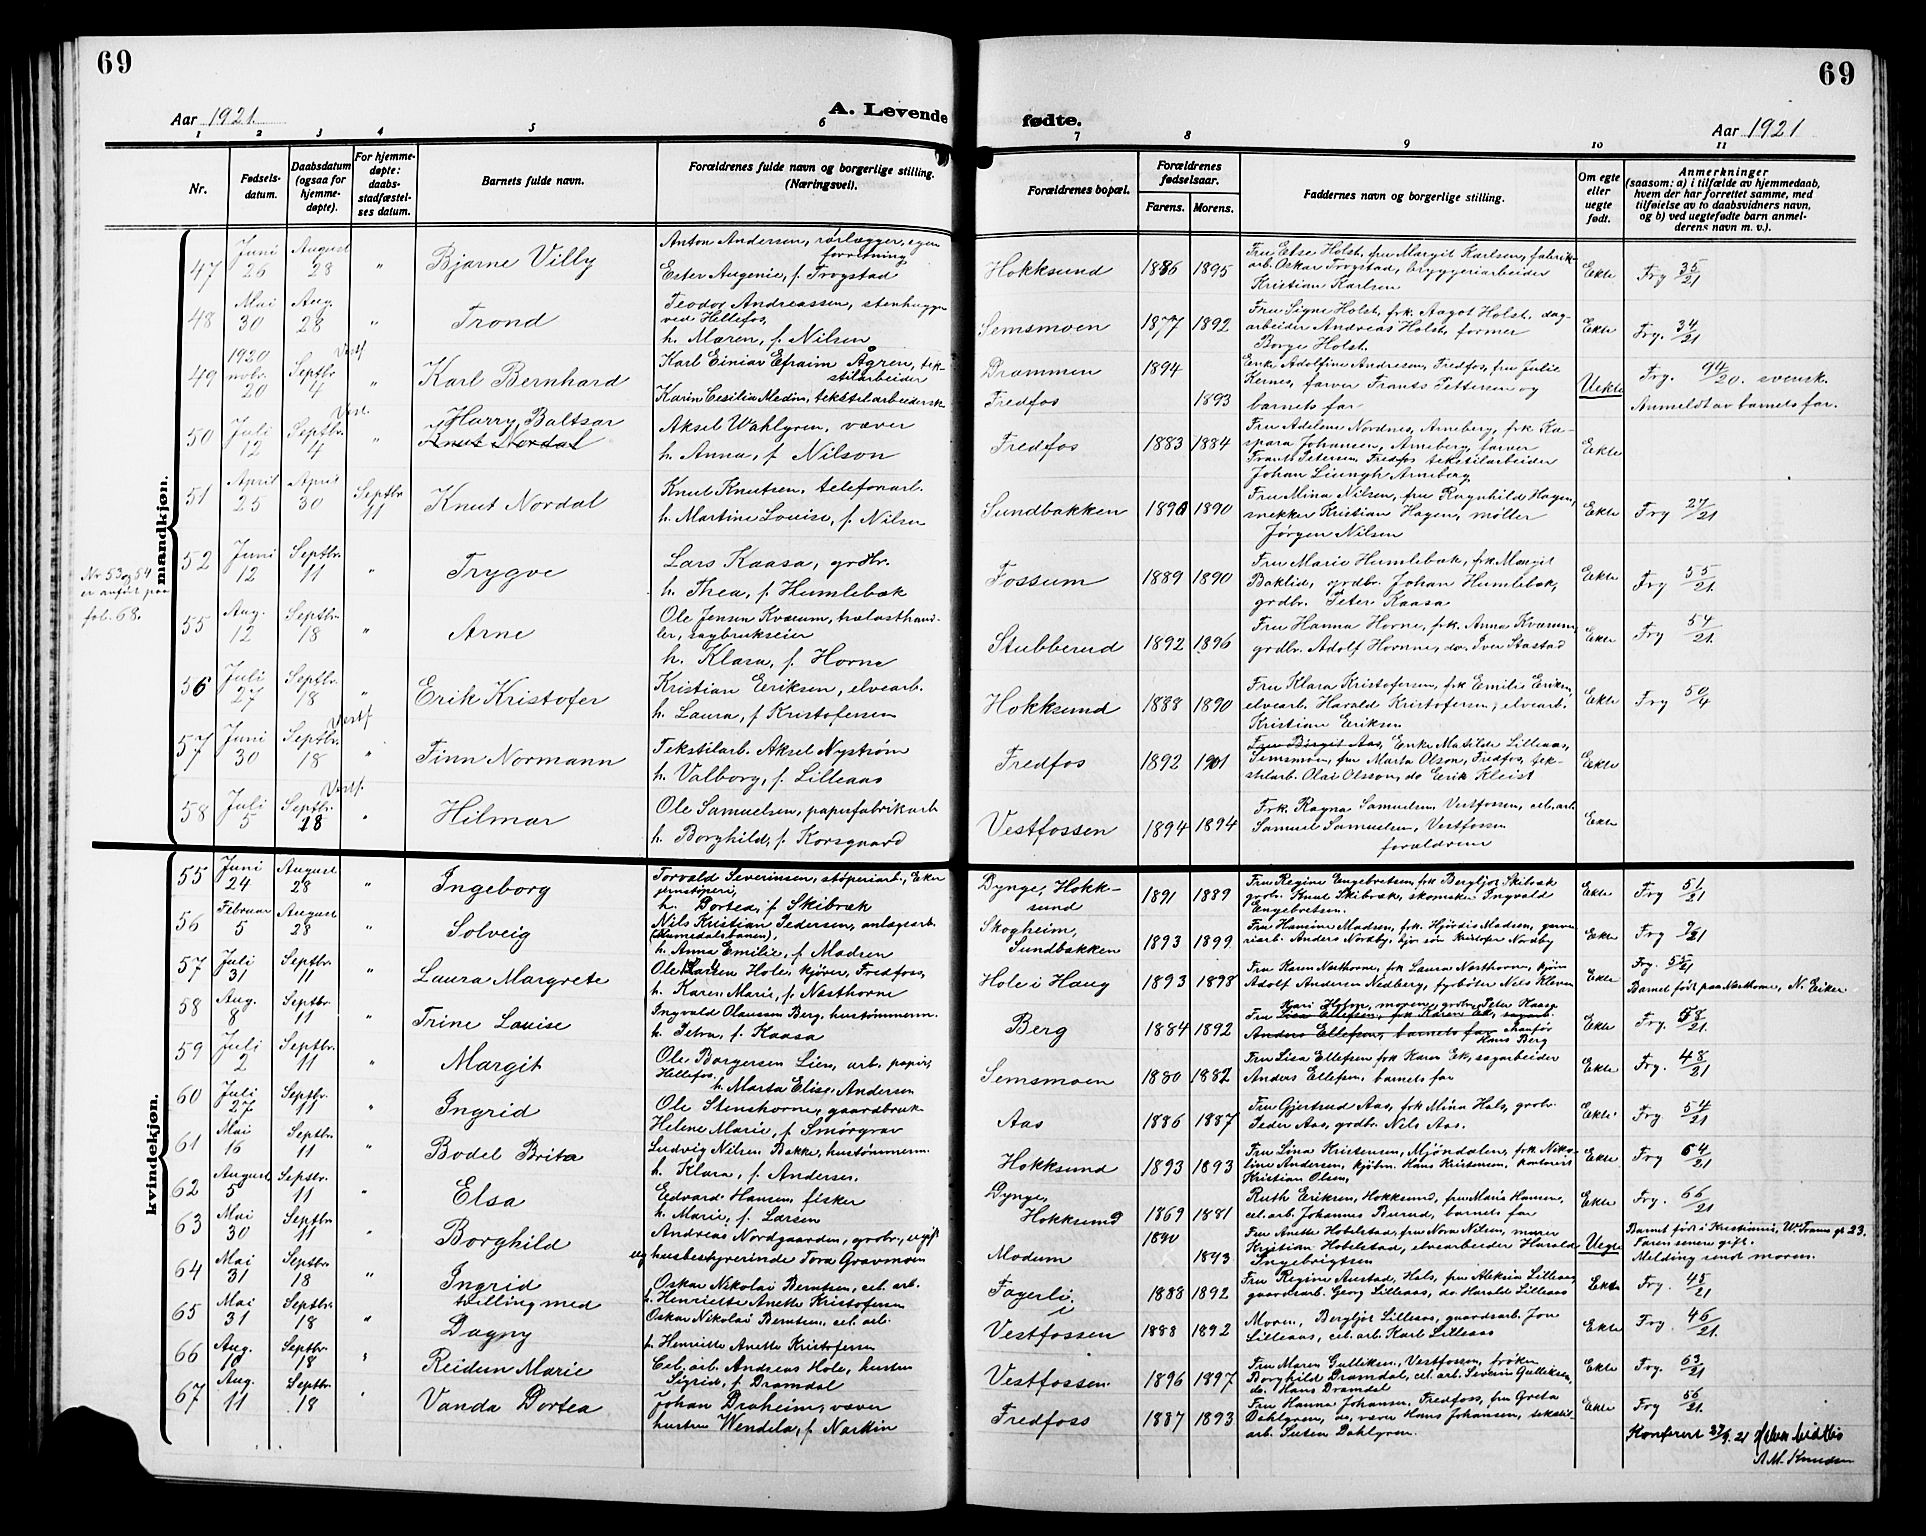 69
69
Aar 1921.
A. Levende
fødte.
Aar 1921
1 2 3 4 5 6 7 8 9 10 11
Nr.
Fødsels-
datum.
Daabsdatum
(ogsaa for
hjemme-
døpte).
For hjemme-
døpte:
daabs-
stadfæstel-
ses datum.
Barnets fulde navn.
Forældrenes fulde navn og borgerlige stilling.
(Næringsvei).
Forældrenes bopæl.
Forældrenes
fødselsaar.
Farens. Morens.
Faddernes navn og borgerlige stilling.
Om egte
eller
uegte
født.
Anmerkninger
(saasom: a) i tilfælde av hjemmedaab,
hvem der har forrettet samme, med
tilføielse av to daabsvidners navn,
og b) ved uegtefødte barn anmel-
derens navn m. v.).
mandkjøn.
Nr 53 og 54
er anført paa
fol. 68.
47 Juni 26 August 28 " Bjarne Villy
Anton Andersen, rørlægger, egen
forretning
Ester Augenie, f. Trogstad
Hokksund 1886 1895
Fru Else Holst, fru Margit Karlsen, fabrik-
arb. Oskar Trogstad, bryggeriarbeider
Kristian Karlsen
Ekte Frg 35/21
48 Mai 30 Aug. 28 " Trond
Teodor Andreassen, stenhugger
ved Hellefos,
h. Maren, f. Nilsen
Semsmoen 1877 1892
Fru Signe Holst, frk. Aagot Holst, dag-
arbeider Andreas Holst, former
Borge Holst.
Ekte Frg. 34/21
49 1920 novbr. 20 Septbr. 4 Vestf " Karl Bernhard
Karl Einiar Efraim Ågren, tek-
stilarbeider
Karin Cesilia Medin, tekstilarbeidersk
Drammen 1894
Fredfos 1893
Enke Adolfine Andresen, Fredfos, fru Julie
Kernes, farver Frants Pettersen og
barnets far
Uekte Frg. 94/20. svensk.
Anmeldt av barnets far.
50 Juli 12 Septbr. 4 Vest. " Harry Baltsar
Knut Nordal
Aksel Wahlgren, væver
h. Anna, f. Nilson
Fredfos 1883 1884
Fru Adeline Nordnes, Arneberg, frk Ka-
spara Johansen, Arneberg, farver
Frants Petersen, Fredfos tekstilarbeider
Johan Liungh Arneberg
Ekte
51 April 25 April 30 Septbr 11 Knut Nordal
Knut Knutsen, telefonarb.
h. Martine Louise, f. Nilsen
Sundbakken 1890 1890
Fru Mina Nilsen, fru Ragnhild Hagen,
snekker Kristian Hagen, møller
Jørgen Nilsen
Ekte Frg 27/21
52 Juni 12 Septbr. 11 " Trygve
Lars Kaasa, grdbr.
h. Thea, f. Humlebæk
Fossum 1889 1890
Fru Marie Humlebæk, frk. Margit
Baklid, grdbr. Johan Humlebæk,
grdbr. Peter Kaasa
Ekte Frg 55/21.
55 Aug. 12 Septbr. 18 " Arne
Ole Jensen Kværum, trælasthand-
ler, sagbrukseier
h. Klara, f. Horne
Stubberud 1892 1896
Fru Hanna Horne, frk. Anna Kværum,
grdbr. Adolf Hornne, do. Iver Stastad
Ekte Frg 54/21.
56 Juli 27 Septbr. 18 " Erik Kristofer
Kristian Eriksen, elvearb.
h. Laura, f. Kristofersen
Hokksund 1888 1890
Fru Klara Kristofersen, frk Emilie Eriksen,
elvearb. Harald Kristofersen, elvearb.
Kristian Eriksen
Ekte Frg 50/4
57 Juni 30 Septbr. 18 Vestf " Finn Normann
Tekstilarb. Aksel Nystrøm
h. Valborg, f. Lilleaas
Fredfos 1892 1901
Fru Birgit Aas, Enke Matilde Lilleaas,
Semsmoen, fru Marta Olson, Fredfos, tek-
stilarb. Olai Olsson, do Eerik Kleist
Ekte
58 Juli 5 Septbr. 18 Vestf. " Hilmar
Ole Samuelsen, papirfabrikarb
h. Borghild, f. Korsgaard
Vestfossen 1894 1894
Frk. Ragna Samuelsen, Vestfossen, cel. arb
Samuel Samuelsen, Vestfossen
forældrene
Ekte
kvindekjøn.
55 Juni 24 August 28 " Ingeborg
Torvald Severinsen, støperiarb., Eker
jernstøperi,
h. Dortea, f. Skibræk
Dynge, Hokk-
sund 1891 1889
Fru Regine Engebretsen, frk Bergljot Skibræk
grdbr. Knut Skibræk, skomaker Ingvald
Engebretsen.
Ekte Frg 51/21
56 Februar 5 August 28 " Solveig
Nils Kristian Pedersen, anlægsarb.
(Numedalsbanen),
h. Anna Emilie, f. Madsen
Skogheim,
Sundbakken 1893 1899
Fru Hansine Madsen, frk. Hjørdis Madsen, garve-
riarb. Anders Nordby, hjv. søn Kristofer Nordby
Ekte Frg 9/21
57 Juli 31 Septbr. 11 " Laura Margrete
Ole Larsen Hole, kjører, Fredfoss,
h. Karen Marie, f. Næsthorne
Hole i Haug 1893 1898
Fru Karen Næsthorne, frk Laura Næsthorne,
Adolf Andersen Nedberg, fyrbøter Nils Kleven
Ekte Frg. 55/21
Barnet født paa Næsthorne, N. Eiker
58 Aug. 8 Septbr. 11 " Trine Louise
Ingvald Olaussen Berg, hustømmerm.
h. Petra, f. Kaasa
Berg 1884 1892
Kari Hofsn, moren, grdbr. Peter Kaasa
Fru Lisa Ellefsen, frk Karen Ek, sagarb.
Anders Ellefsen, barnets far
Hans Berg
Ekte Frg. 58/21.
59 Juli 2 Septbr. 11 " Margit
Ole Borgersen Lien, arb. papir,
Hellefos,
h. Marta Elise, Andersen
Semsmoen 1880 1882
Fru Lisa Ellefsen frk Karen Ek, sagarbeider
Anders Ellefsen, barnets far
Ekte Frg. 48/21
60 Juli 27 Septbr. 11 " Ingrid
Ole Stenshorne, gaardbruk-
Helene Marie, f. Smörgrav
Aas 1886 1887
Fru Gjertrud Aas, frk Mina Hals, grdbr.
Peder Aas, grdbr. Nils Aas.
Ekte Frg. 54/21
61 Mai 16 Septbr. 11 " Bodel Brita
Ludvig Nilsen Bakke, hustømmerm.
h. Klara, f. Andersen.
Hokksund 1893 1893
Fru Lina Kristensen, Mjøndalen, frk. Niko-
line Andersen, kjøbm. Hans Kristensen, kontorist
Kristian Olsen,
Ekte Frg 64/21
62 August 5 Septbr. 11 " Elsa
Edvard Hansen, fisker
h. Marie, f. Larsen
Dynge,
Hokksund 1869 1881
Ruth Eriksen, Hokksund, fru Maria Hansen,
cel. arb. Johannes Burud, barnets far
Ekte Frg. 66/21
63 Mai 30 Septbr. 11 " Borghild
Andreas Nordgaarden, grdbr., ugift
ug husbestyrerinde Tora Gravmoen
Modum 1890 1893
Fru Anette Hobelstad, fru Nora Nilsen, murer
Kristian Hobelstad, elvearbeider Harald
Ingebrigtsen
Uegte Barnet født i Kristiania, W. Trams gt 23.
Faren senere gift.
Melding sendt moren.
64 Mai 31 Septbr. 18 " Ingrid
tvilling med
Oskar Nikolai Berntsen, cel. arb.
h. Henriette Anette Kristofersen
Fagerli 1888 1892
Fru Regine Anstad, Hals, fru Aleksia Lilleaas
gaardsarb. Georg Lilleaas, do. Harald Lilleaas
Ekte Frg. 45/21
65 Mai 31 Septbr. 18 " Dagny
Oskar Nikolai Berntsen, cel. arb.
h. Henriette Anette Kristofersen
i
Vestfossen 1888 1892
Moren, Bergljot Lilleaas, gaardsarb. Jon
Lilleaas, cel. arb. Karl Lilleaas
Ekte Frg 46/21.
66 Aug. 10 Septbr. 18 " Reidun Marie
Cel. arb. Andreas Hole, hustru
Sigrid, f. Dramdal
Vestfossen. 1896 1897
Fru Maren Gulliksen, Vestfossen, frøken
Borghild Dramdal, cel. arb. Severin Gulliksen,
do. Hans Dramdal
Ekte Frg. 63/21
67 Aug. 11 Septbr. 18 Vanda Dortea
Johan Draheim, væver
hustru Wendela, f. Narkin
Fredfoss 1887 1893
Fru Hanna Johansen, Fredfoss, fru Greta
Dahlgren, do, væver Hans Johansen, tekstil-
arb. Sixten Dahlgren.
Ekte Frg 56/21.
Konferert 27/9. 21
A M. Knudsen